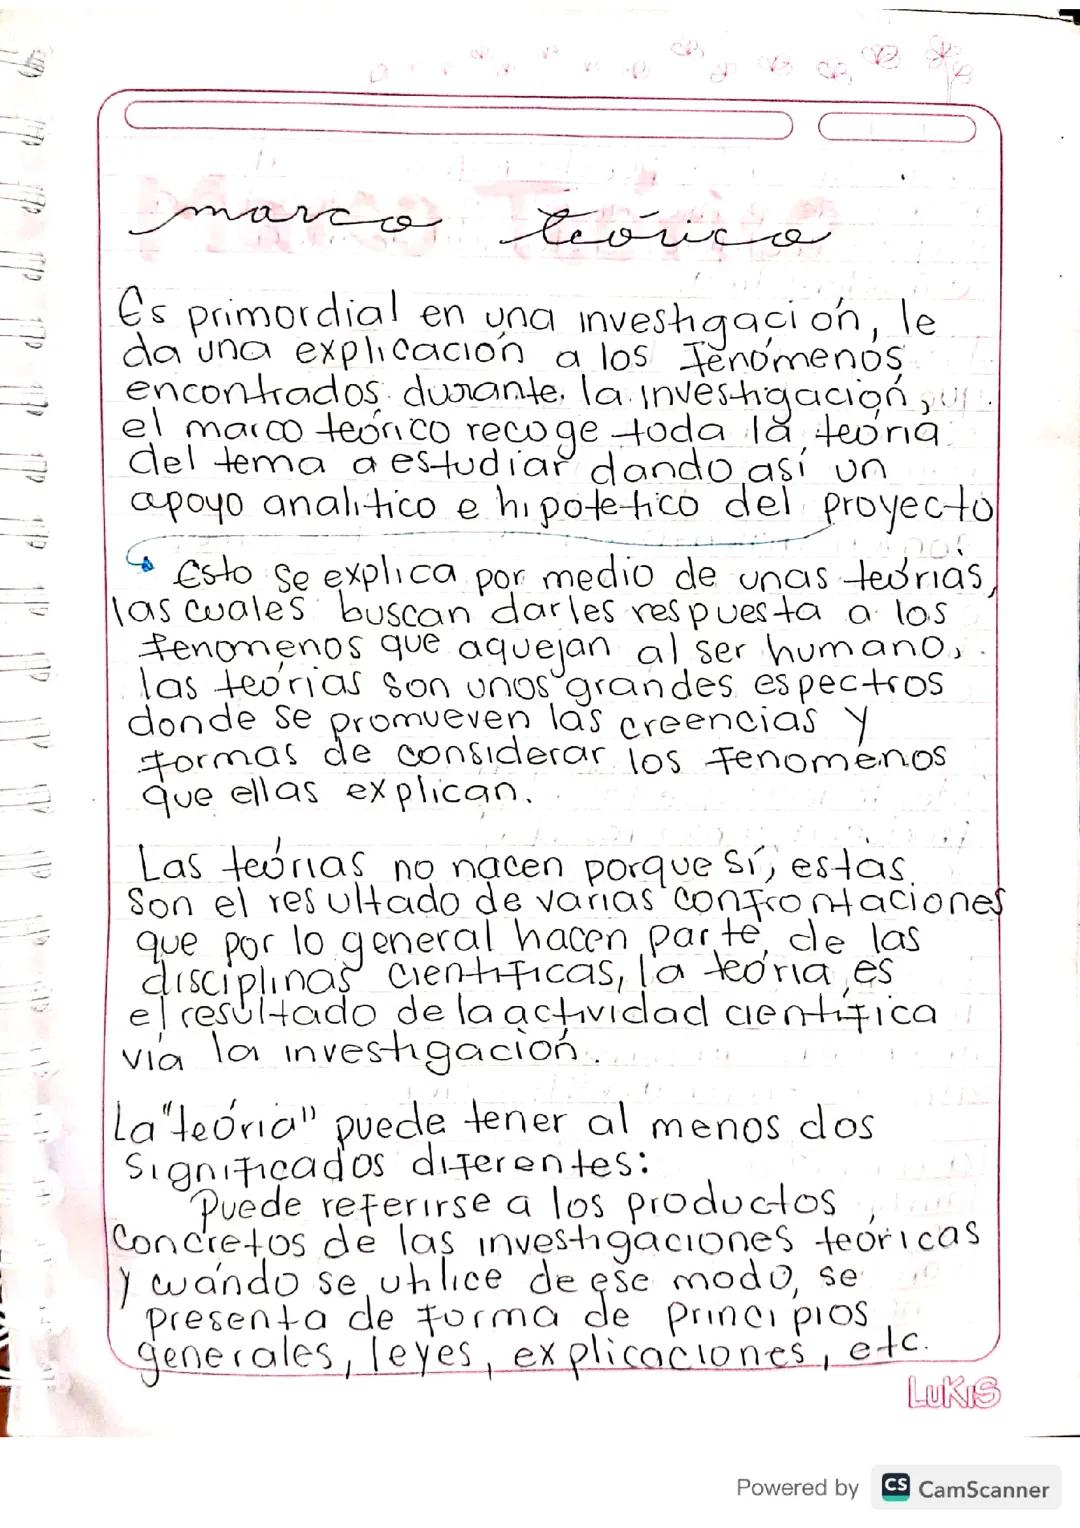 marco teórico
Es primordial en una investigación, le
da una explicación a los fenómenos
encontrados durante la investigación,
el marco teórico recoge toda la teória
del tema a estudiar dando así un
apoyo analítico e hipotetico del proyecto
Esto se explica por medio de unas teórias,
las cuales buscan darles respuesta a los
fenomenos que aquejan al ser humano,
las teórias son unos grandes espectros
donde se promueven las creencias y
formas de considerar los fenomenos
que ellas explican.
Las teórias no nacen porque Sí, estas
Son el resultado de varias confrontaciones
que por lo general hacen parte de las
disciplinas cientificas, la teória es
el resultado de la actividad cientifica
vía la investigación.
La "teória" puede tener al menos dos
Significados diferentes:
Puede referirse a los productos
Concretos de las investigaciones teoricas
y cuándo se utilice de ese modo, se
presenta de forma de principios
generales, leyes, explicaciones, etc.
LUKIS
Powered by CS CamScanner